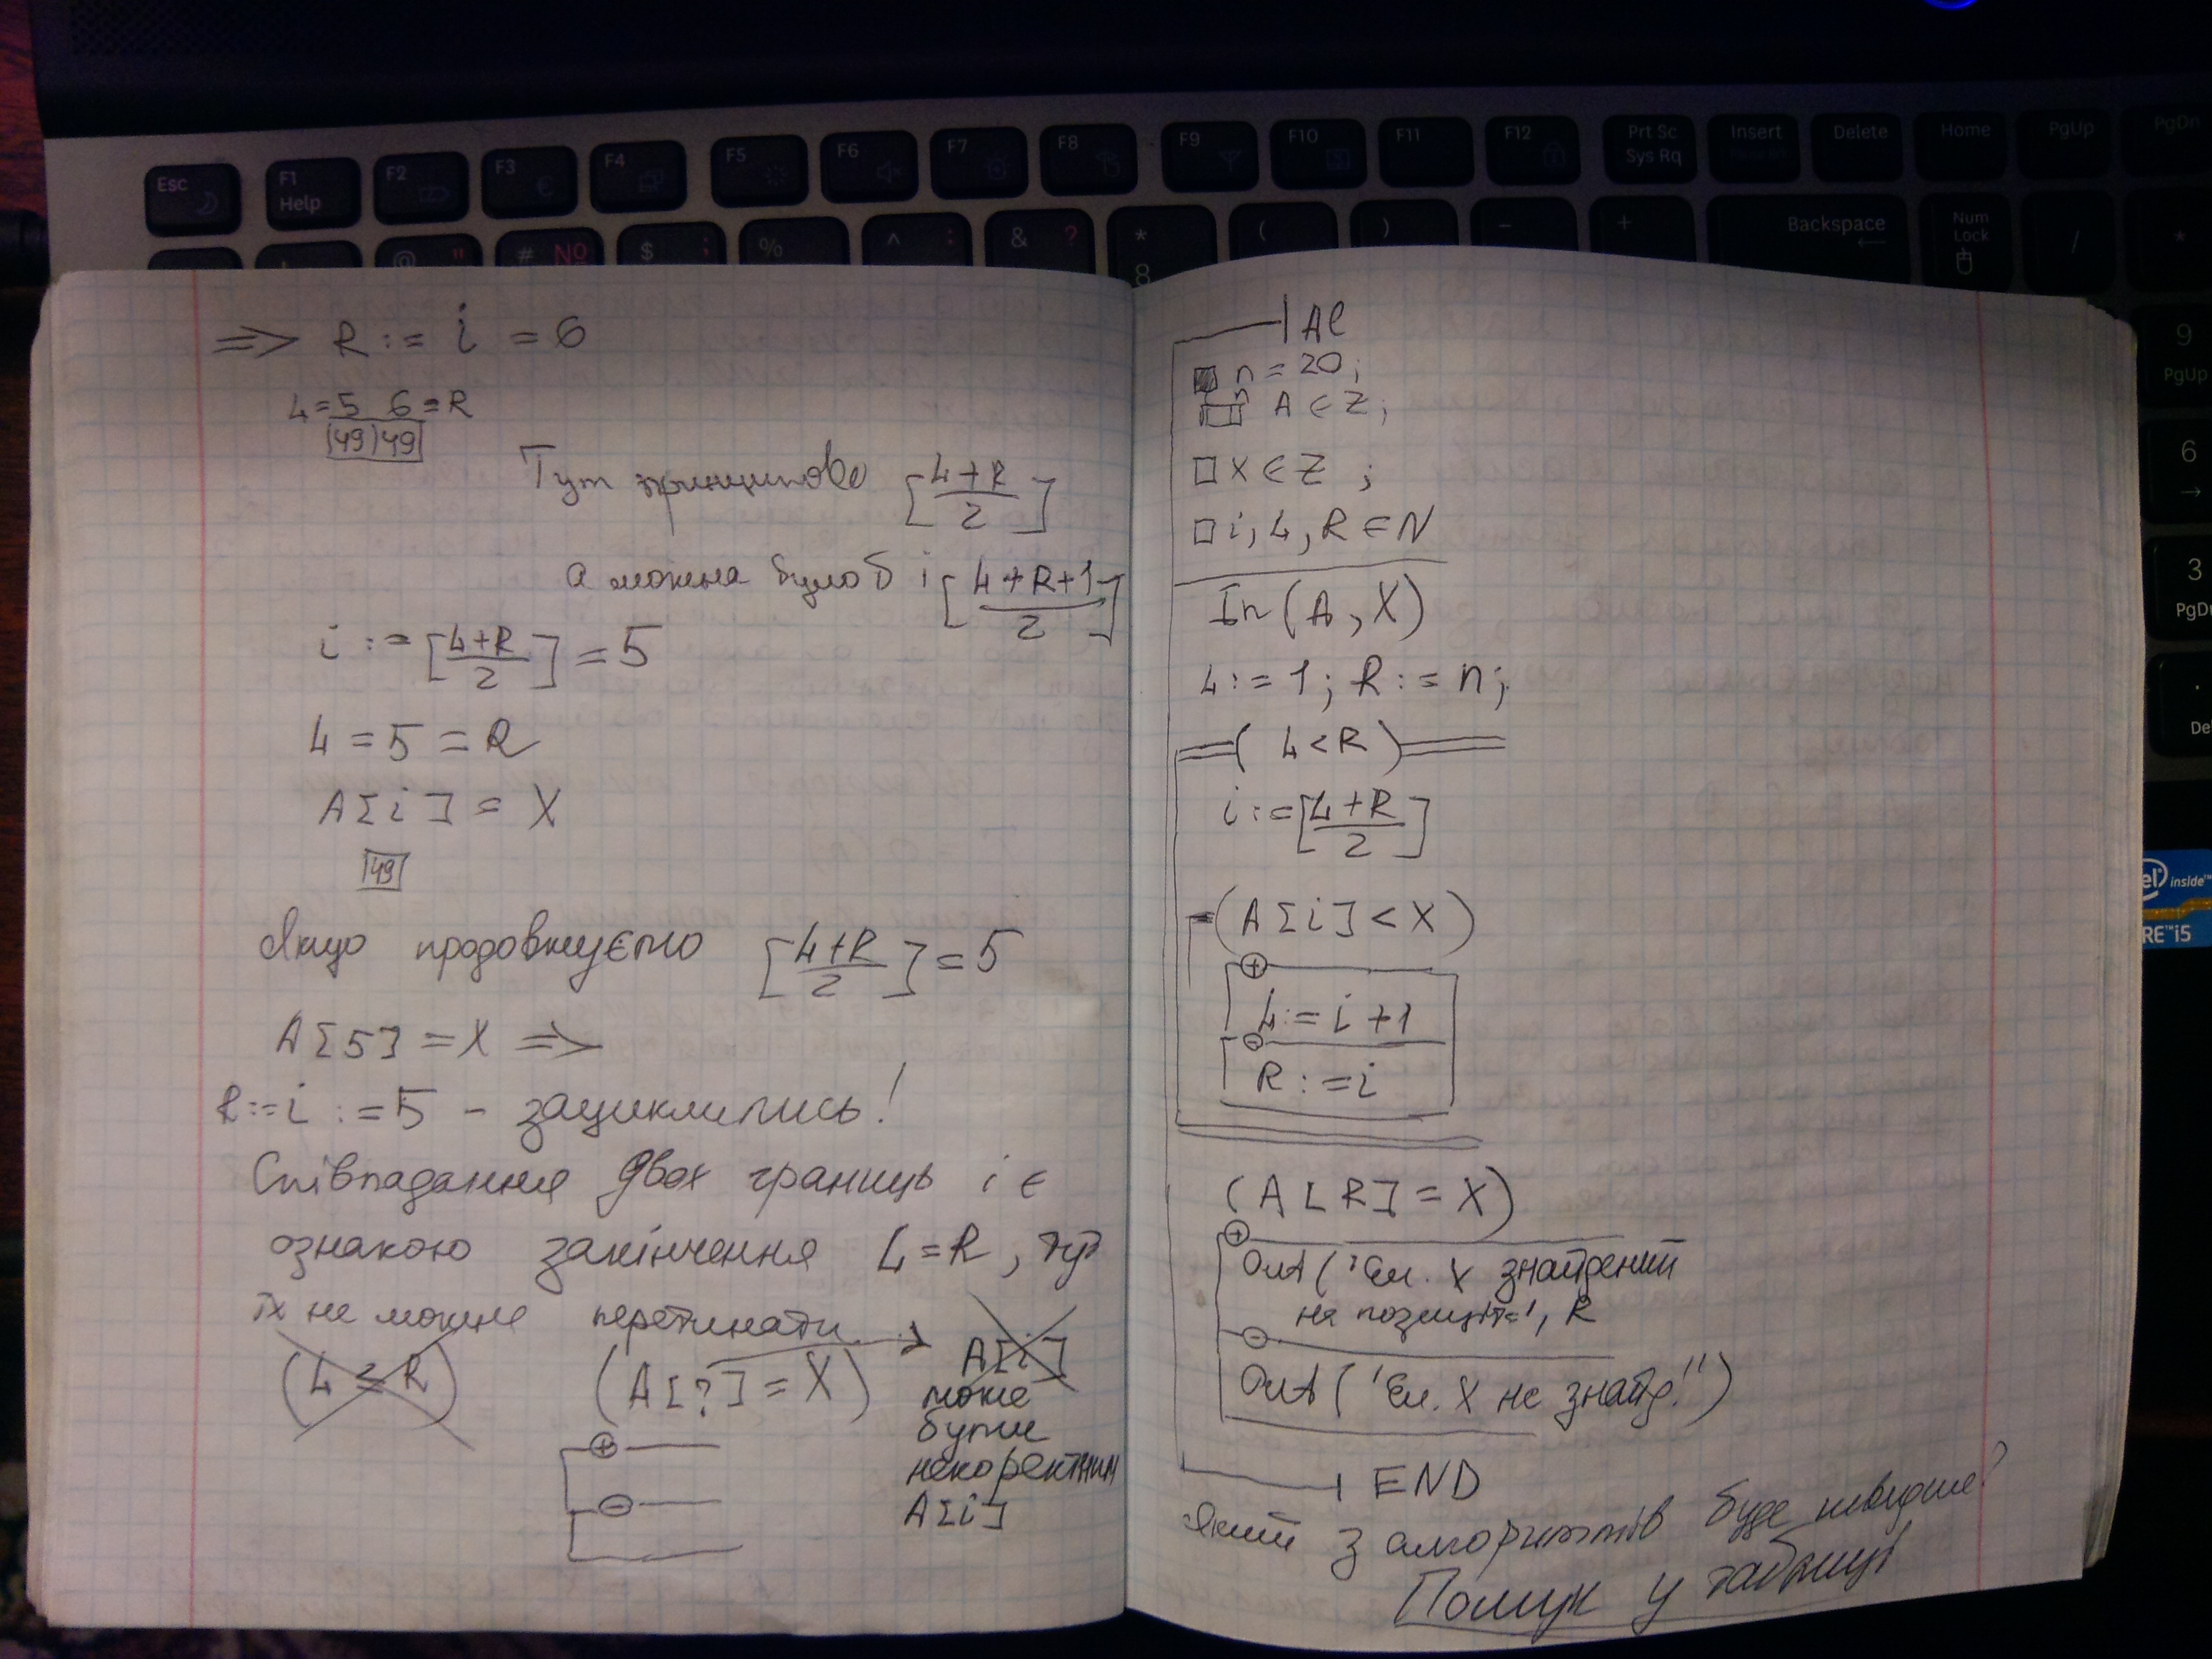 Esc
F1 Help
F2
F3
F4
F5
F6
F7
F8
F9
F10
F11
F12
Prt Sc Sys Rq
Insert
Delete
Home
PgUp
PgDn
@ " # № $ ; % ^ : & ? * 8 ( ) - + Backspace Num Lock / *
9 PgUp
6
3 PgDn
. Del
inside™
CORE™ i5
⇒ R := i = 6
L=5 6=R
|49|49|
Тут принципово [(L+R)/2]
а можна було б і [(L+R+1)/2]
i := [(L+R)/2] = 5
L = 5 = R
A[i] = X
|49|
Якщо продовжуємо [(L+R)/2] = 5
A[5] = X ⇒
R:=i:=5 – зациклились!
Співпадання двох границь і є
ознакою закінчення L=R, тут
їх не можна перетинати
(L ≤ R) (A[?] = X) → A[i]
може
бути
некоректним
A[i]
⊕
⊖
Al
n = 20;
n A ∈ Z;
□ X ∈ Z ;
□ i, L, R ∈ N
In(A, X)
L := 1; R := n;
( L < R )
i := [(L+R)/2]
(A[i] < X)
⊕
L := i+1
⊖
R := i
(A[R] = X)
⊕
Out('Ел. X знайдений
на позиції=', R
⊖
Out('Ел. X не знайд!')
END
Який з алгоритмів буде швидше?
Пошук у таблиці